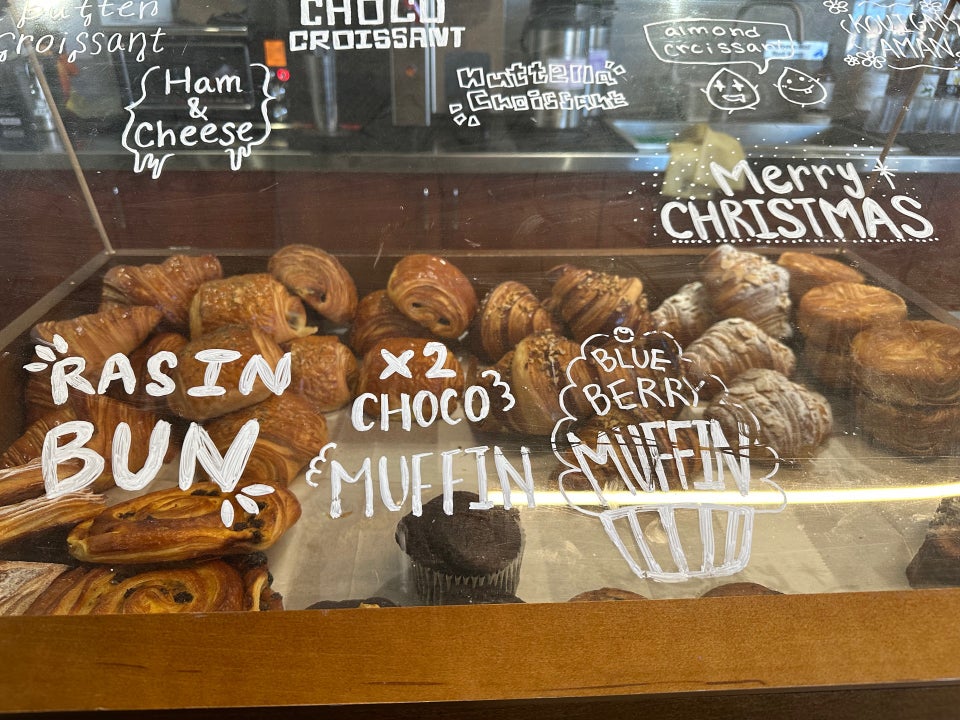 butter
Croissant
CHOCO
CROISSANT
Ham
&
Cheese
Nuttella
Croissant
almond
croissant
KOUIGN
AMAN
Merry
CHRISTMAS
RASIN
BUN
x2
CHOCO
MUFFIN
BLUE
BERRY
MUFFIN